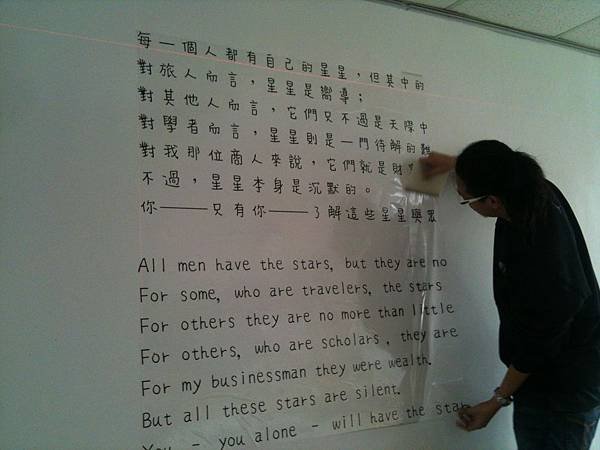 每一個人都有自己的星星，但其中的
對旅人而言，星星是嚮導；
對其他人而言，它們只不過是天際中
對學者而言，星星則是一門待解的難
對我那位商人來說，它們就是財
不過，星星本身是沉默的。
你———只有你———了解這些星星與眾
All men have the stars, but they are no
For some, who are travelers, the stars
For others they are no more than little
For others, who are scholars, they are
For my businessman they were wealth.
But all these stars are silent.
You - you alone - will have the star